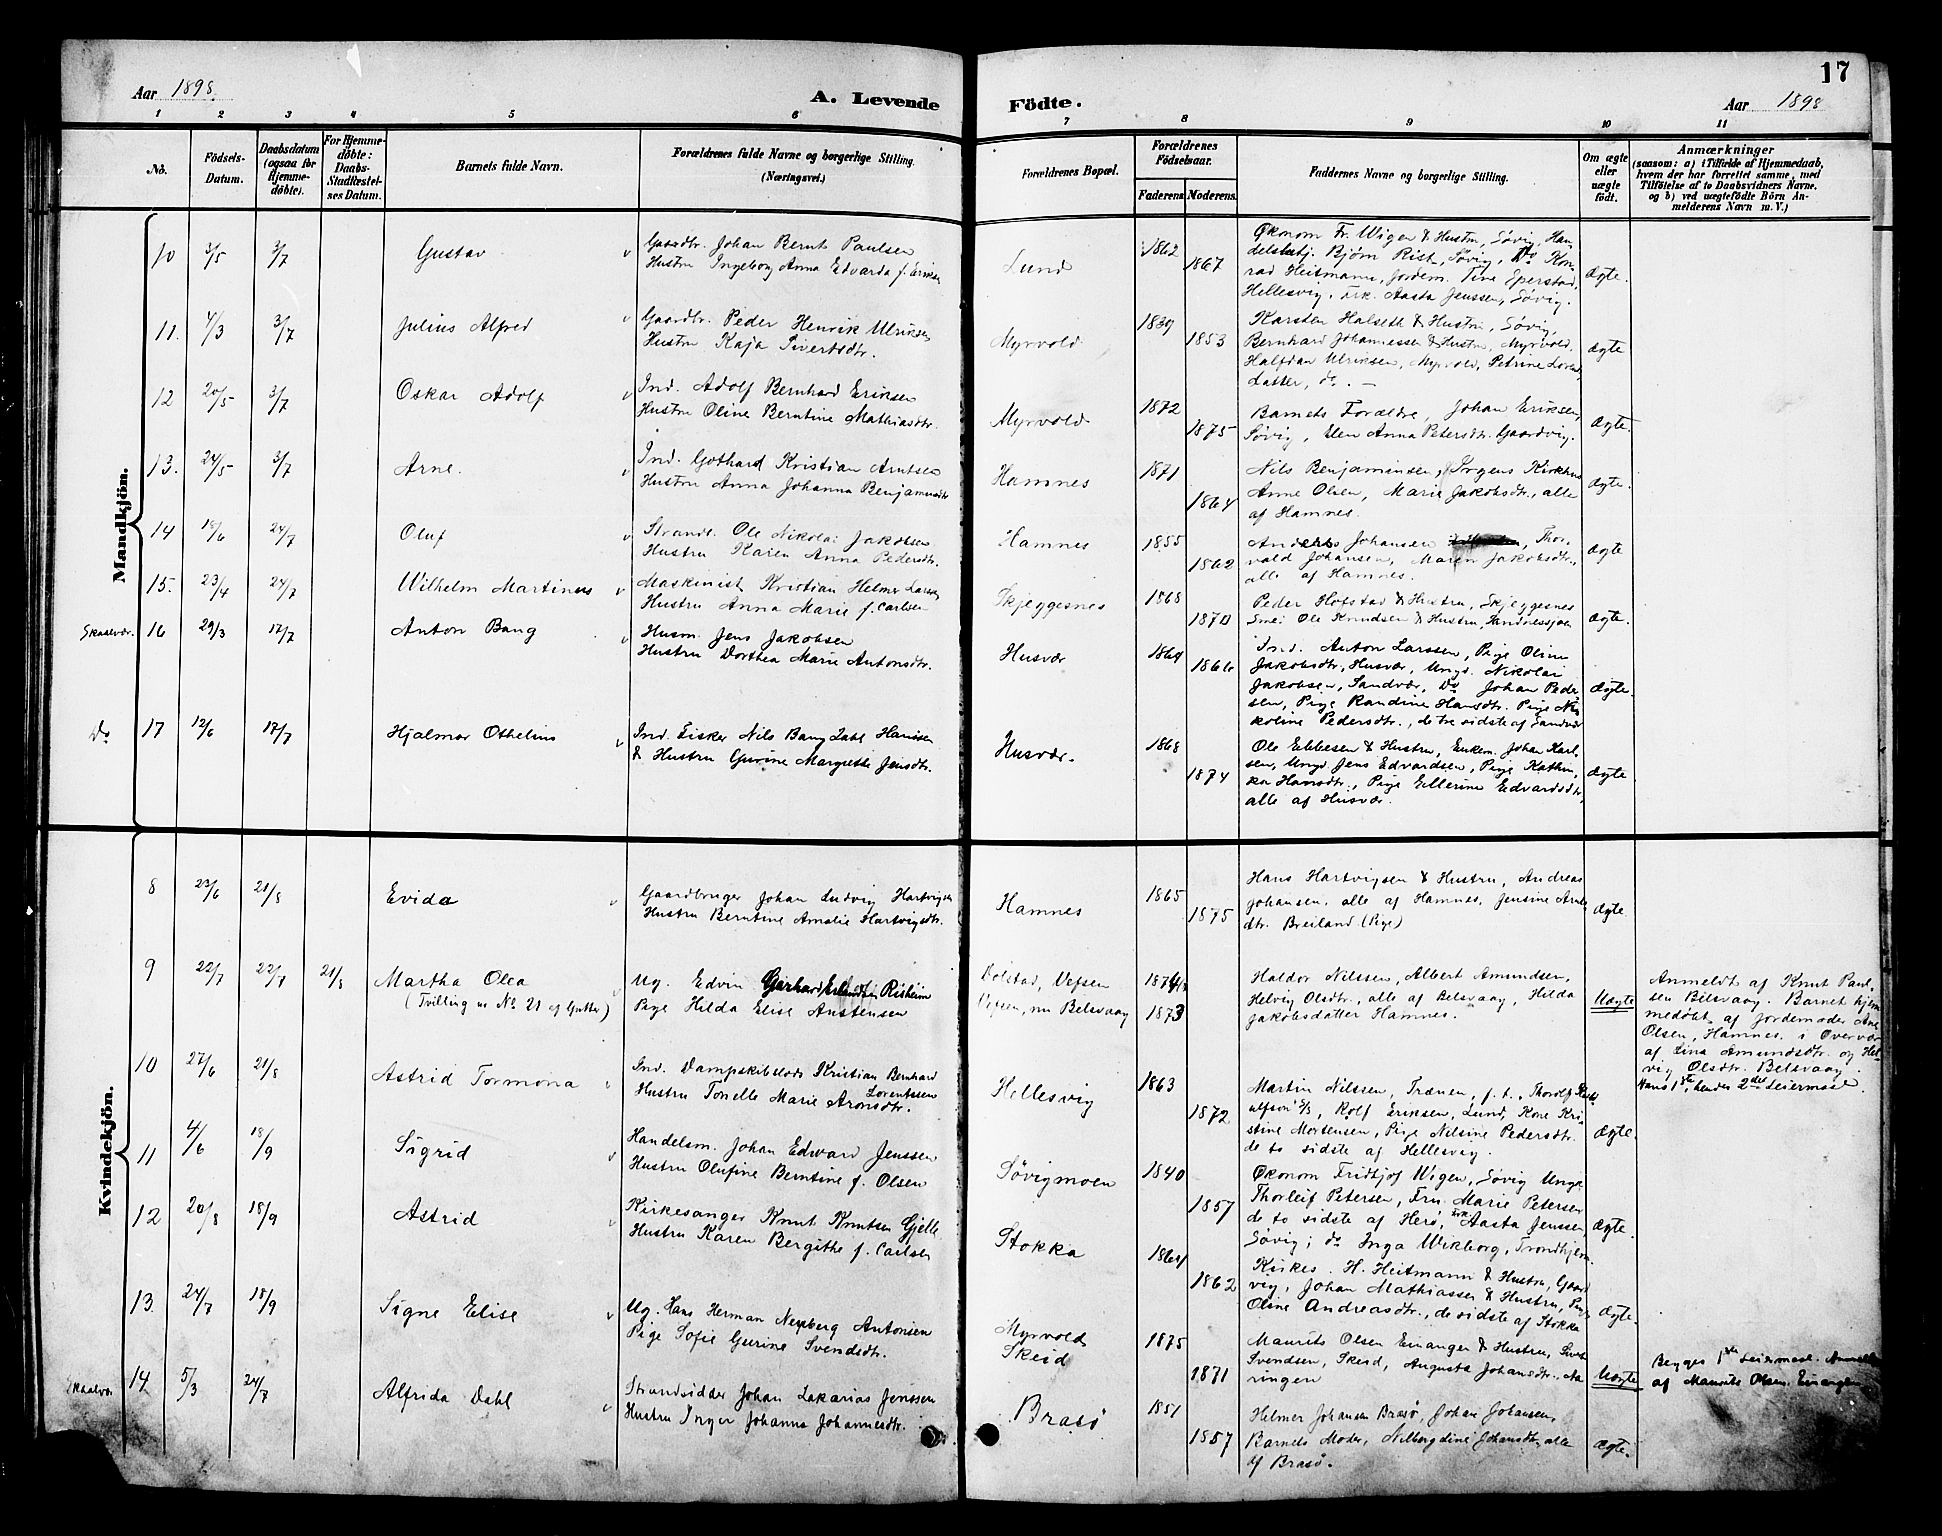 17
Aar 1898. A. Levende Födte. Aar 1898
1 2 3 4 5 6 7 8 9 10 11
No.
Födsels-
Datum.
Daabsdatum
(ogsaa for
Hjemme-
döbte).
For Hjemme-
döbte:
Daabs-
Stadfæstel-
ses Datum.
Barnets fulde Navn.
Forældrenes fulde Navne og borgerlige Stilling.
(Næringsvei.)
Forældrenes Bopæl.
Forældrenes
Födselsaar.
Faderens Moderens.
Faddernes Navne og borgerlige Stilling.
Om ægte
eller
uægte
födt.
Anmærkninger
(saasom: a) i Tilfælde af Hjemmedaab,
hvem der har forrettet samme, med
Tilföielse af to Daabsvidners Navne.
og b) ved uægtefödte Börn An-
melderens Navn m. V.)
Mandkjön.
10 3/5 3/7 Gustav
Gaardbr. Johan Bernt Paulsen
Hustru Ingeborg Anna Edvarda f. Eriksen
Lund 1862 1867
Økonom Fr. Wigen & Hustru, Søvig, Han-
delsbetj. Bjørn Rist, Søvig, Do Kon-
rad Heitmann, Jordem. Tine Eperstad,
Hellesvig, Frk. Aasta Jenssen, Søvig.
Ægte.
11. 4/3 3/7 Julius Alfred
Gaardbr. Peder Henrik Ulriksen
Hustru Kaja Sivertsdtr.
Myrvold 1839 1853
Karsten Halseth & Hustru, Søvig,
Bernhard Johannessen & Hustru, Myrvold,
Halfdan Ulriksen, Myrvold, Petrine Lorents
datter, do. —
Ægte
12 20/5 3/7 Oskar Adolf
Ind. Adolf Bernhard Eriksen
Hustru Oline Berntine Mathiasdtr.
Myrvold 1872 1875
Barnets Forældre, Johan Eriksen,
Søvig, Anna Petersdtr. Gaardvig.
Ægte.
13. 24/5 3/7 Arne.
Ind. Gothard Kristian Arntsen
Hustru Anna Johanna Benjaminsdtr
Hamnes 1871 1864
Nils Benjaminsen, Jrgens Kirkhus
Anne Olsen, Marie Jakobsdtr., alle
af Hamnes.
Ægte.
14 18/6 24/7 Oluf
Strands. Ole Nikolai Jakobsen
Hustru Karen Anna Pedersdtr.
Hamnes 1855 1862
Anders Johansen, Thor-
vald Johansen, Maren Jakobsdtr.,
alle af Hamnes.
Ægte
15. 23/4 24/7 Wilhelm Martinus
Maskinist Kristian Helmer Larsen
Hustru Anna Marie f. Carlsen
Skjeggesnes 1868 1870
Peder Hofstad & Hustru, Skjeggesnes
Smed Ole Knudsen & Hustru, Sandnessjøen
Ægte.
Skaalvær. 16 29/3 17/7 Anton Bang
Husm. Jens Jakobsen
Hustru Dorthea Marie Antonsdtr.
Husvær 1864 1866
Ind. Anton Larssen, Pige Oline
Jakobsdtr., Husvær, Ungd. Nikolai
Jakobsen, Sandvær, Do Johan Peder-
sen, Pige Randine Hansdtr. Pige Ni-
koline Pedersdtr., de tre sidste af Sandvær
Ægte.
Do 17 12/6 17/7 Hjalmar Othelius
Ind. Fisker Nils Bang Dahl Hansen
& Hustru Gurine Margrethe Jensdtr.
Husvær. 1868 1874
Ole Ebbesen & Hustru, Enkem. Johan Karl-
sen, Ungd. Jens Edvardsen, Pige Kathin-
ka Hansdtr., Pige Ellerine Edvardsdtr,
alle af Husvær.
Ægte
Kvindekjön.
8 23/6 21/8 Evida
Gaardbruger Johan Ludvig Hartvigsen
Hustru Berntine Amalie Hartvigsdtr.
Hamnes 1865 1875
Hans Hartvigsen & Hustru, Andreas
Johansen, alle af Hamnes, Jensine Arnts-
dtr. Breiland (Pige)
Ægte
9 22/7 22/7 21/8 Martha Olea
(Tvilling m No. 21 af Gutter)
Ug. Edvin Gerhard Erlandsen Risheim
Pige Hilda Elise Austensen
Dolstad, Vefsen
Vefsen, nu Belsvaag 1873
Haldor Nilssen, Albert Amundsen,
Helvig Olsdtr., alle af Belsvaag, Hilda
Jakobsdatter Hamnes.
Uægte
Anmeldt af Knut Paul-
sen Belsvaag. Barnet hjem-
medøbt af Jordemoder Ane
Olsen, Hamnes i Overvær
af Lina Amundsdtr. og Hel-
vig Olsdtr. Belsvaag.
Hans 1ste, hendes 2det Leiermaal.
10 27/6 21/8 Astrid Tormona
Ind. Dampskibslods Kristian Bernhard
Lorentssen
Hustru Tonelle Marie Aronsdtr.
Hellesvig 1863 1872
Martin Nilssen, Trænen, f. t., Thorolf
Rolf Eriksen, Lund, Kone Kri-
stine Mortensen, Pige Nilsine Pedersdtr.
de to sidste af Hellesvig.
Ægte.
11 4/6 18/9 Sigrid
Handelsm. Johan Edward Jenssen
Hustru Olufine Berntine f. Olsen
Søvigmoen 1840 1857
Økonom Fridtjof Wigen, Søvig Ung.
Thorleif Petersen, Fru Marie Petersen
de to sidste af Herø, Frk. Aasta Jenssen,
Søvig; do Inga Wikborg, Trondhjem.
Ægte.
12 20/8 18/9 Astrid
Kirkesanger Knut Knutsen Gjelle
Hustru Karen Bergithe f. Carlsen
Stokka 1864 1862
Kirkes. H. Heitmann & Hustru, Gaard-
vig, Johan Mathiassen & Hustru, Pige
Oline Andreasdtr., de sidste af Stokka
Ægte.
13. 24/7 18/9 Signe Elise
Ug. Hans Herman Nyberg Antonsen
Pige Sofie Gurine Svendsdtr.
Myrvold
Skeid 1875 1871
Maurits Olsen Einanger & Hustru, Sivert
Svendsen, Skeid, Augusta Johansdtr.,
Uægte
Begges 1ste Leiermaal. Anmeldt
af Maurits Olsen Einangen
Skaalvær 14. 5/3 24/7 Alfrida Dahl
Strandsidder Johan Zakarias Jenssen
Hustru Inger Johanna Johannesdtr.
Brasø 1851 1857
Helmer Johansen Brasø, Johan Johansen,
Barnets Moder, Nilbergdine Johansdtr, alle
af Brasø.
Ægte.